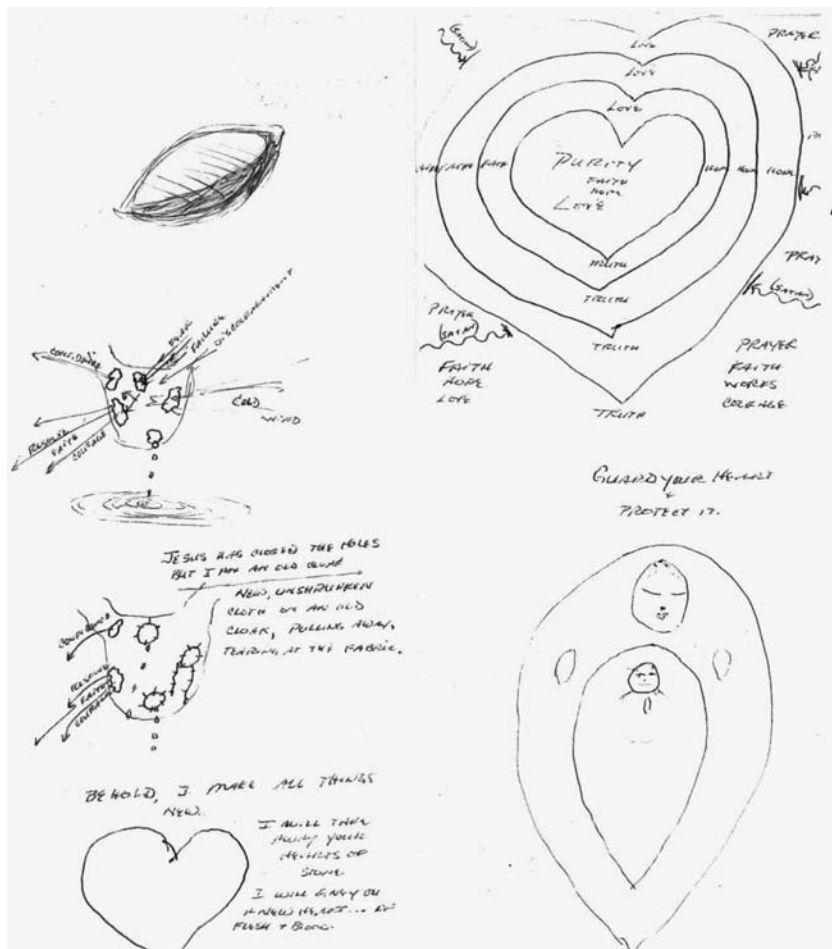 CONFIDENCE
FEAR
FAILURE
DISCOURAGEMENT
COLD
WIND
RESOLVE
FAITH
COURAGE
JESUS HAS CLOSED THE HOLES
BUT I AM AN OLD CLOAK
NEW, UNSHRUNKEN
CLOTH ON AN OLD
CLOAK, PULLING AWAY,
TEARING AT THE FABRIC.
CONFIDENCE
RESOLVE
FAITH
COURAGE
BEHOLD, I MAKE ALL THINGS
NEW.
I WILL TAKE
AWAY YOUR
HEARTS OF
STONE
I WILL GIVE YOU
A NEW HEART... OF
FLESH + BLOOD.
(SATAN)
LOVE
PRAYER
LOVE
LOVE
PURITY
FAITH
HOPE
LOVE
HOPE
TRUTH
TRUTH
PRAY
(SATAN)
PRAYER
(SATAN)
TRUTH
FAITH
HOPE
LOVE
PRAYER
FAITH
WORKS
COURAGE
TRUTH
GUARD YOUR HEART
+
PROTECT IT.